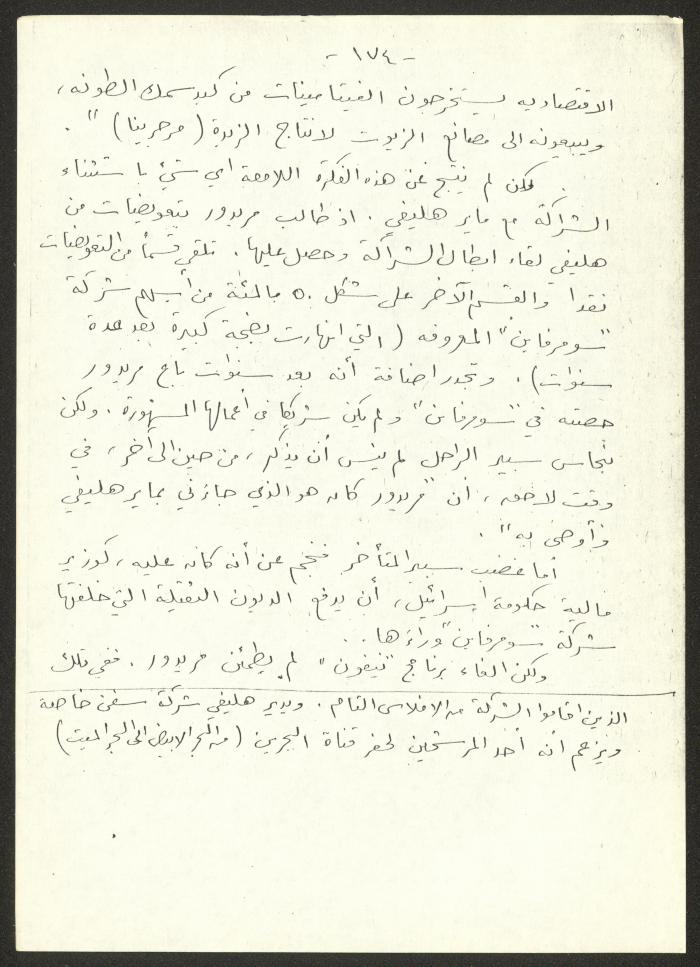 - ١٧٤ -
الاقتصاديه يستخرجون الفيتامينات من كبد سمك الطونه ،
ويبيعونه الى مصانع الزيوت لانتاج الزبدة ( مرجرينا ) " .
لكن لم ينتج عن هذه الفكرة اللامعة اي شيء باستثناء
الشراكة مع ماير هليفي . اذ طالب مريدور بتعويضات من
هليفي لقاء ابطال الشراكة وحصل عليها . تلقى قسماً من التعويضات
نقداً والقسم الآخر على شكل ٥٠ بالمئة من أسهم شركة
"سومرفاين" المعروفه ( التي انهارت بضجة كبيرة بعد عدة
سنوات ) . وتجدر اضافة أنه بعد سنوات باع مريدور
حصته في "سومرفاين" ولم يكن شريكا في أعمالها المشهورة . ولكن
بنحاس سبير الراحل لم ينس أن يذكر ، من حين الى آخر ، في
وقت لاحق ، أن "مريدور كان هو الذي جاءني بماير هليفي
وأوصى به" .
أما غضب سبير المتأخر فنجم عن أنه كان عليه ، كوزير
مالية حكومة اسرائيل ، أن يدفع الديون الثقيلة التي خلفتها
شركة "سومرفاين" وراءها ..
ولكن الغاء برنامج "نيفون" لم يطمئن مريدور . ففي تلك
الذين اقاموا الشركة من الافلاس التام . ويدير هليفي شركة سفن خاصة
ويزعم أنه أحد المرشحين لحفر قناة البحرين ( من البحر الابيض الى البحر الميت )